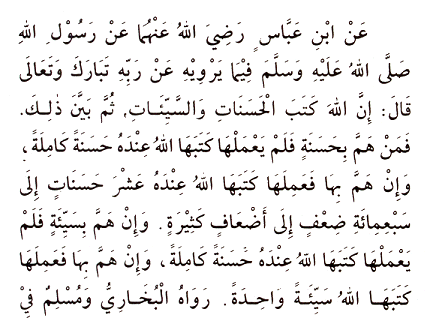 عَنْ ابْنِ عَبَّاسٍ رَضِيَ اللهُ عَنْهُمَا عَنْ رَسُوْلِ اللهِ
صَلَّى اللهُ عَلَيْهِ وَسَلَّمَ فِيْمَا يَرْوِيْهِ عَنْ رَبِّهِ تَبَارَكَ وَتَعَالَى
قَالَ: إِنَّ اللهَ كَتَبَ الْحَسَنَاتِ وَالسَّيِّئَاتِ, ثُمَّ بَيَّنَ ذٰلِكَ.
فَمَنْ هَمَّ بِحَسَنَةٍ فَلَمْ يَعْمَلْهَا كَتَبَهَا اللهُ عِنْدَهُ حَسَنَةً كَامِلَةً،
وَإِنْ هَمَّ بِهَا فَعَمِلَهَا كَتَبَهَا اللهُ عِنْدَهُ عَشْرَ حَسَنَاتٍ إِلَى
سَبْعِمِائَةِ ضِعْفٍ إِلَى أَضْعَافٍ كَثِيْرَةٍ. وَإِنْ هَمَّ بِسَيِّئَةٍ فَلَمْ
يَعْمَلْهَا كَتَبَهَا اللهُ عِنْدَهُ حَسَنَةً كَامِلَةً، وَإِنْ هَمَّ بِهَا فَعَمِلَهَا
كَتَبَهَا اللهُ سَيِّئَةً وَاحِدَةً. رَوَاهُ الْبُخَارِيُّ وَمُسْلِمٌ فِيْ